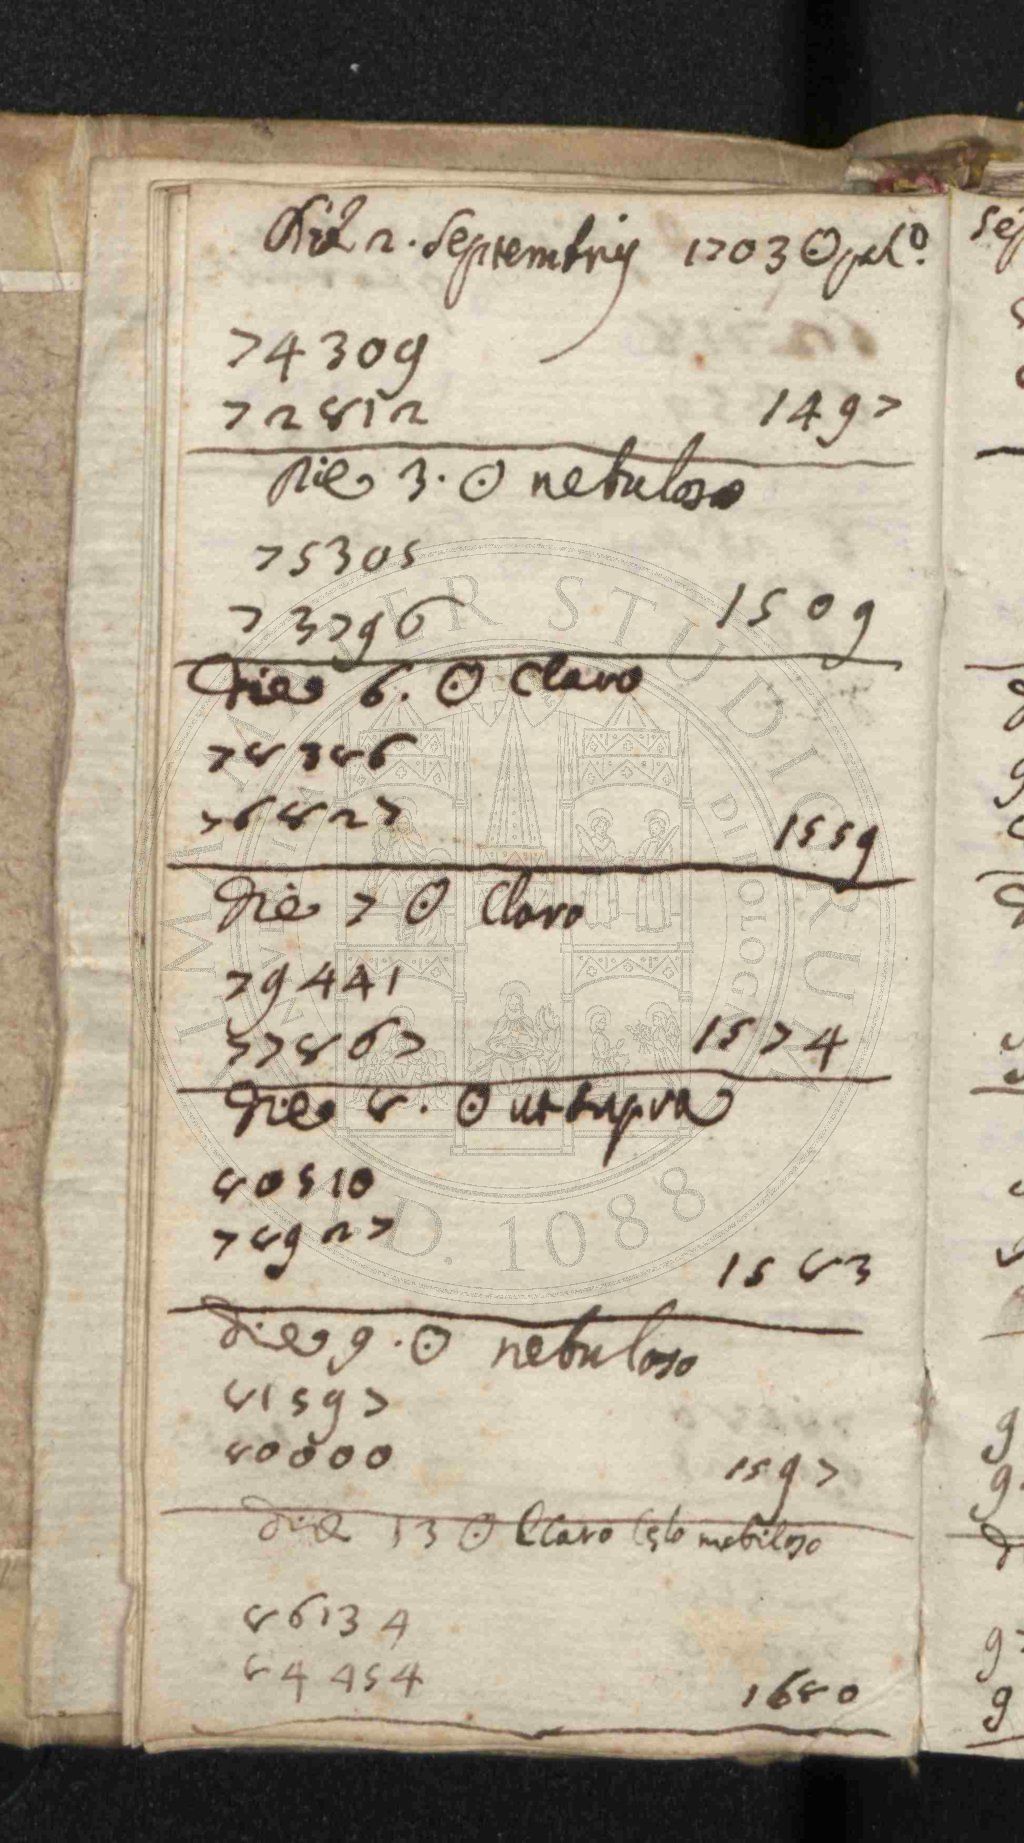 Die 2. Septembris 1703 ☉ pal.º
74309
72812 1497
Die 3. ☉ nebuloso
75305
73796 1509
Die 6. ☉ Claro
78386
76827 1559
Die 7 ☉ Claro
79441
77867 1574
Die 8. ☉ ut supra
80510
78927 1583
Die 9. ☉ nebuloso
81597
80000 1597
Die 13 ☉ Claro Celo nebiloso
86134
84454 1680
ALMA MATER STUDIORUM
UNIVERSITÀ DI BOLOGNA
A.D. 1088